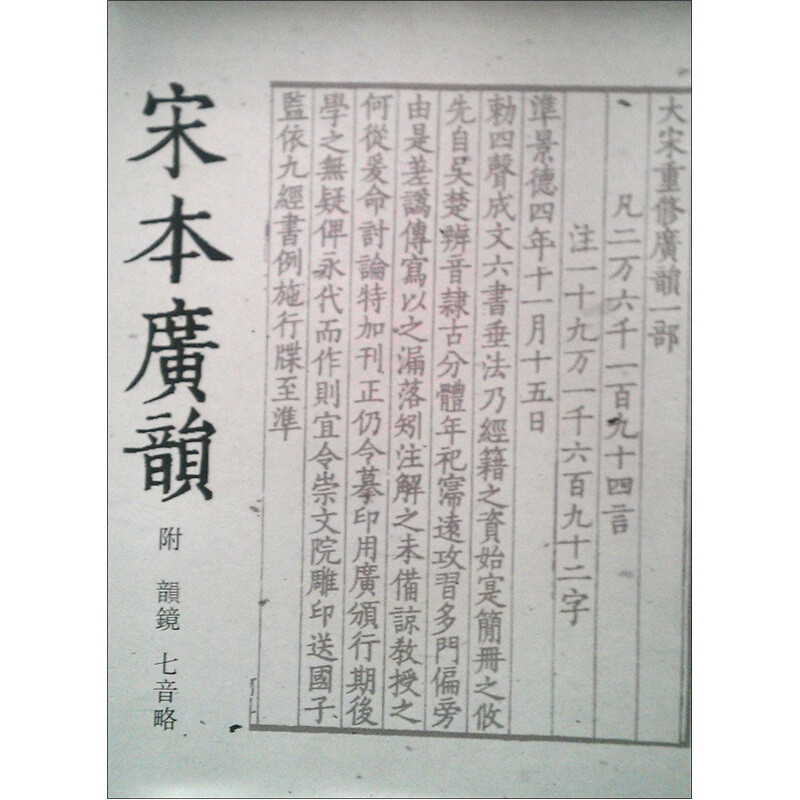 宋本廣韻
附 韻鏡 七音略
大宋重修廣韻一部
凡二万六千一百九十四言
注一十九万一千六百九十二字
準景德四年十一月十五日
勑四聲成文六書垂法乃經籍之資始寔簡冊之攸
先自吴楚辨音隷古分體年祀寖遠攻習多門偏旁
由是差譌傳寫以之漏落矧注解之未備諒教授之
何從爰命討論特加刊正仍令摹印用廣頒行期後
學之無疑俾永代而作則宜令崇文院雕印送國子
監依九經書例施行牒至準